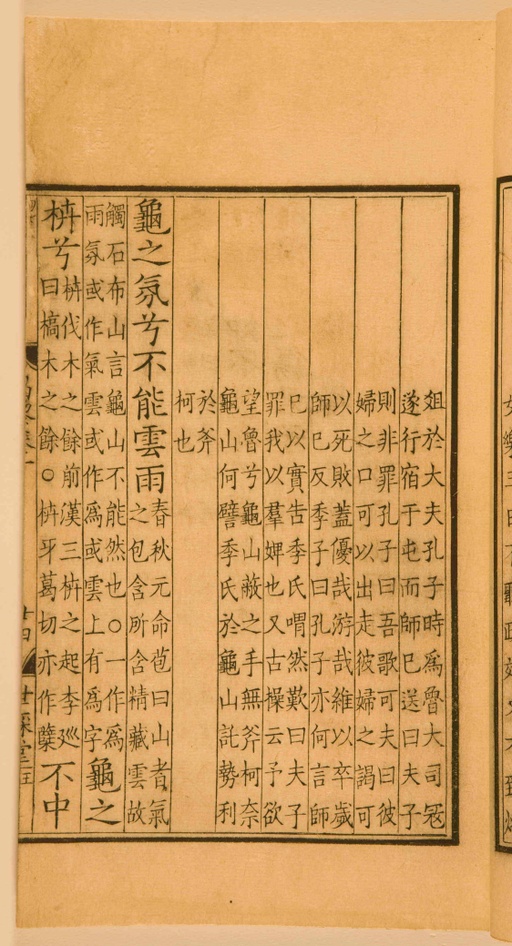 俎於大夫孔子時爲魯大司冦
遂行宿于屯而師巳送曰夫子
則非罪孔子曰吾歌可夫曰彼
婦之口可以出走彼婦之謁可
以死敗蓋優哉游哉維以卒歲
師巳反季子曰孔子亦何言師
巳以實告季氏喟然歎曰夫子
罪我以羣婢也又古操云予欲
望魯兮龜山蔽之手無斧柯奈
龜山何譬季氏於龜山託勢利
於斧
柯也
龜之氛兮不能雲雨
春秋元命苞曰山者氣
之包含所含精藏雲故
觸石布山言龜山不能然也○一作爲
雨氛或作氣雲或作爲或雲上有爲字
龜之
枿兮
枿伐木之餘前漢三枿之起李巡
曰槁木之餘○枿牙葛切亦作蘖
不中
廿四
世綵堂